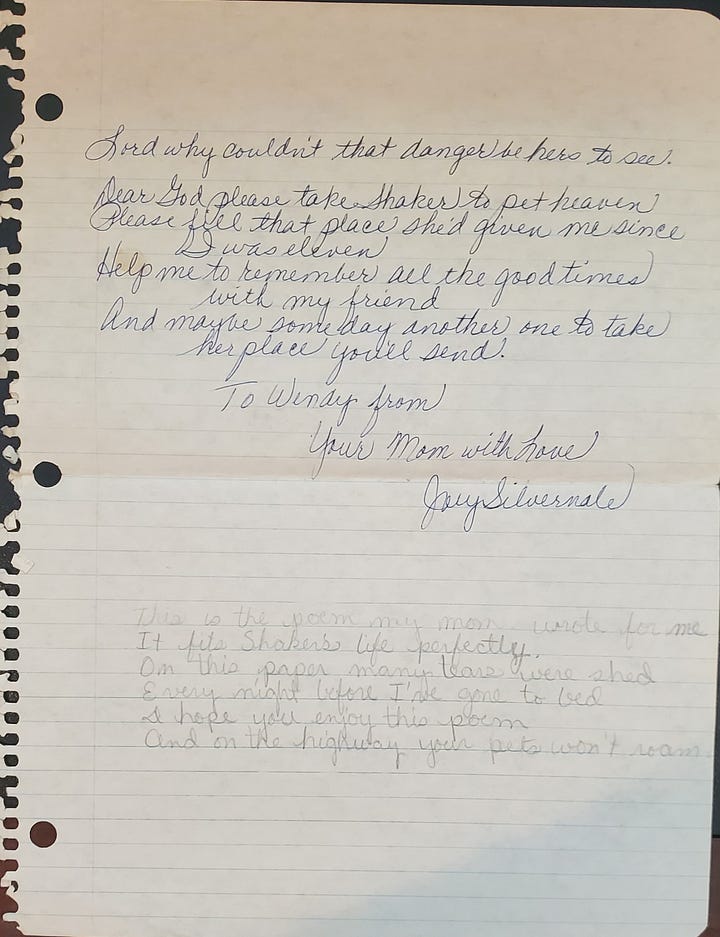 Lord why couldn't that danger be hers to see.
Dear God please take Shaker to pet heaven
Please fill that place she'd given me since
I was eleven
Help me to remember all the good times
with my friend
And maybe someday another one to take
her place you'll send.
To Wendy from
Your Mom with Love
Joey Silvernale
This is the poem my mom wrote for me
It fits Shaker's life perfectly.
On this paper many tears were shed
Every night before I've gone to bed
I hope you enjoy this poem
And on the highway your pets won't roam.